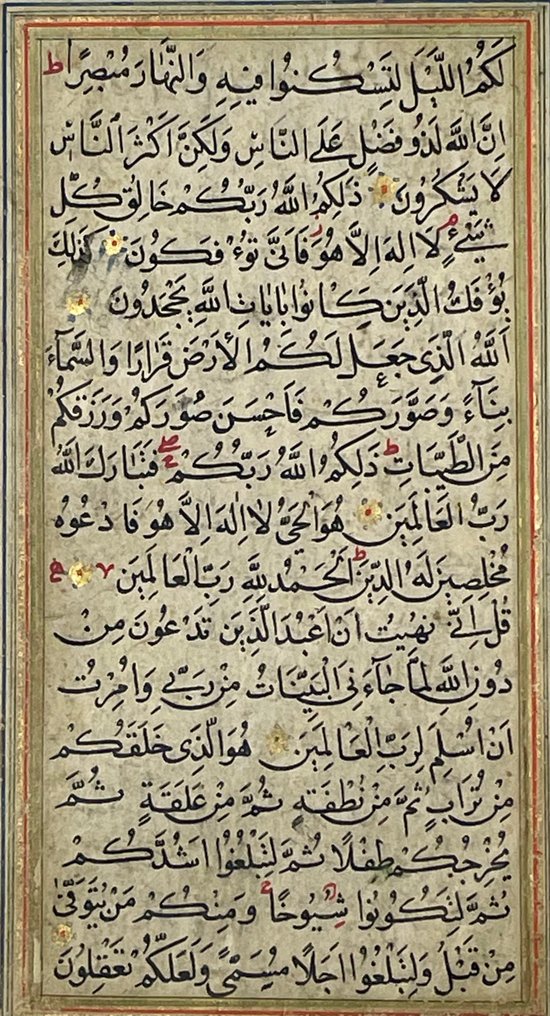 لَكُمُ اللَّيْلَ لِتَسْكُنُوا فِيهِ وَالنَّهَارَ مُبْصِرًا ط
اِنَّ اللَّهَ لَذُو فَضْلٍ عَلَى النَّاسِ وَلَكِنَّ اَكْثَرَ النَّاسِ
لَا يَشْكُرُونَ ذَلِكُمُ اللَّهُ رَبُّكُمْ خَالِقُ كُلِّ
شَيْءٍ م لَا اِلَهَ اِلَّا هُوَ ز فَاَنَّى تُؤْفَكُونَ كَذَلِكَ
يُؤْفَكُ الَّذِينَ كَانُوا بِاٰيَاتِ اللَّهِ يَجْحَدُونَ
اَللَّهُ الَّذِي جَعَلَ لَكُمُ الْاَرْضَ قَرَارًا وَالسَّمَآءَ
بِنَآءً وَصَوَّرَكُمْ فَاَحْسَنَ صُوَرَكُمْ وَرَزَقَكُمْ
مِنَ الطَّيِّبَاتِ ط ذَلِكُمُ اللَّهُ رَبُّكُمْ فَتَبَارَكَ اللَّهُ
رَبُّ الْعَالَمِينَ هُوَ الْحَيُّ لَا اِلَهَ اِلَّا هُوَ فَادْعُوهُ
مُخْلِصِينَ لَهُ الدِّينَ ط اَلْحَمْدُ لِلَّهِ رَبِّ الْعَالَمِينَ
قُلْ اِنِّي نُهِيتُ اَنْ اَعْبُدَ الَّذِينَ تَدْعُونَ مِنْ
دُونِ اللَّهِ لَمَّا جَآءَنِيَ الْبَيِّنَاتُ مِنْ رَبِّي وَاُمِرْتُ
اَنْ اُسْلِمَ لِرَبِّ الْعَالَمِينَ هُوَ الَّذِي خَلَقَكُمْ
مِنْ تُرَابٍ ثُمَّ مِنْ نُطْفَةٍ ثُمَّ مِنْ عَلَقَةٍ ثُمَّ
يُخْرِجُكُمْ طِفْلًا ثُمَّ لِتَبْلُغُوا اَشُدَّكُمْ
ثُمَّ لِتَكُونُوا شُيُوخًا ج وَمِنْكُمْ مَنْ يُتَوَفَّى
مِنْ قَبْلُ وَلِتَبْلُغُوا اَجَلًا مُسَمًّى وَلَعَلَّكُمْ تَعْقِلُونَ